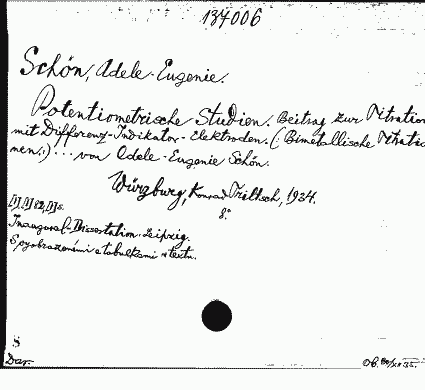 134006
Schön, Adele-Eugenie.
Potentiometrische Studien. Beitrag zur Titration
mit Differenz-Indikator-Elektroden. (Bimetallische Titratio
nen.) ... von Adele-Eugenie Schön.
Würzburg, Konrad Triltsch, 1934.
8°
Inaugural-Dissertation. Leipzig.
S vyobrazeními a tabulkami v textu.
S
Dar.